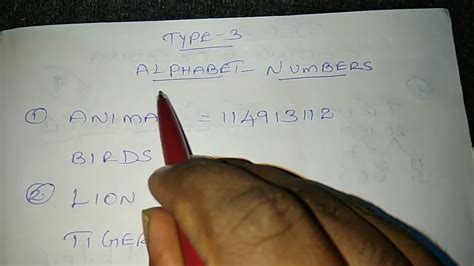 TYPE-3
ALPHABET- NUMBERS
① ANIMA = 114913112
BIRDS
② LION
TIGER